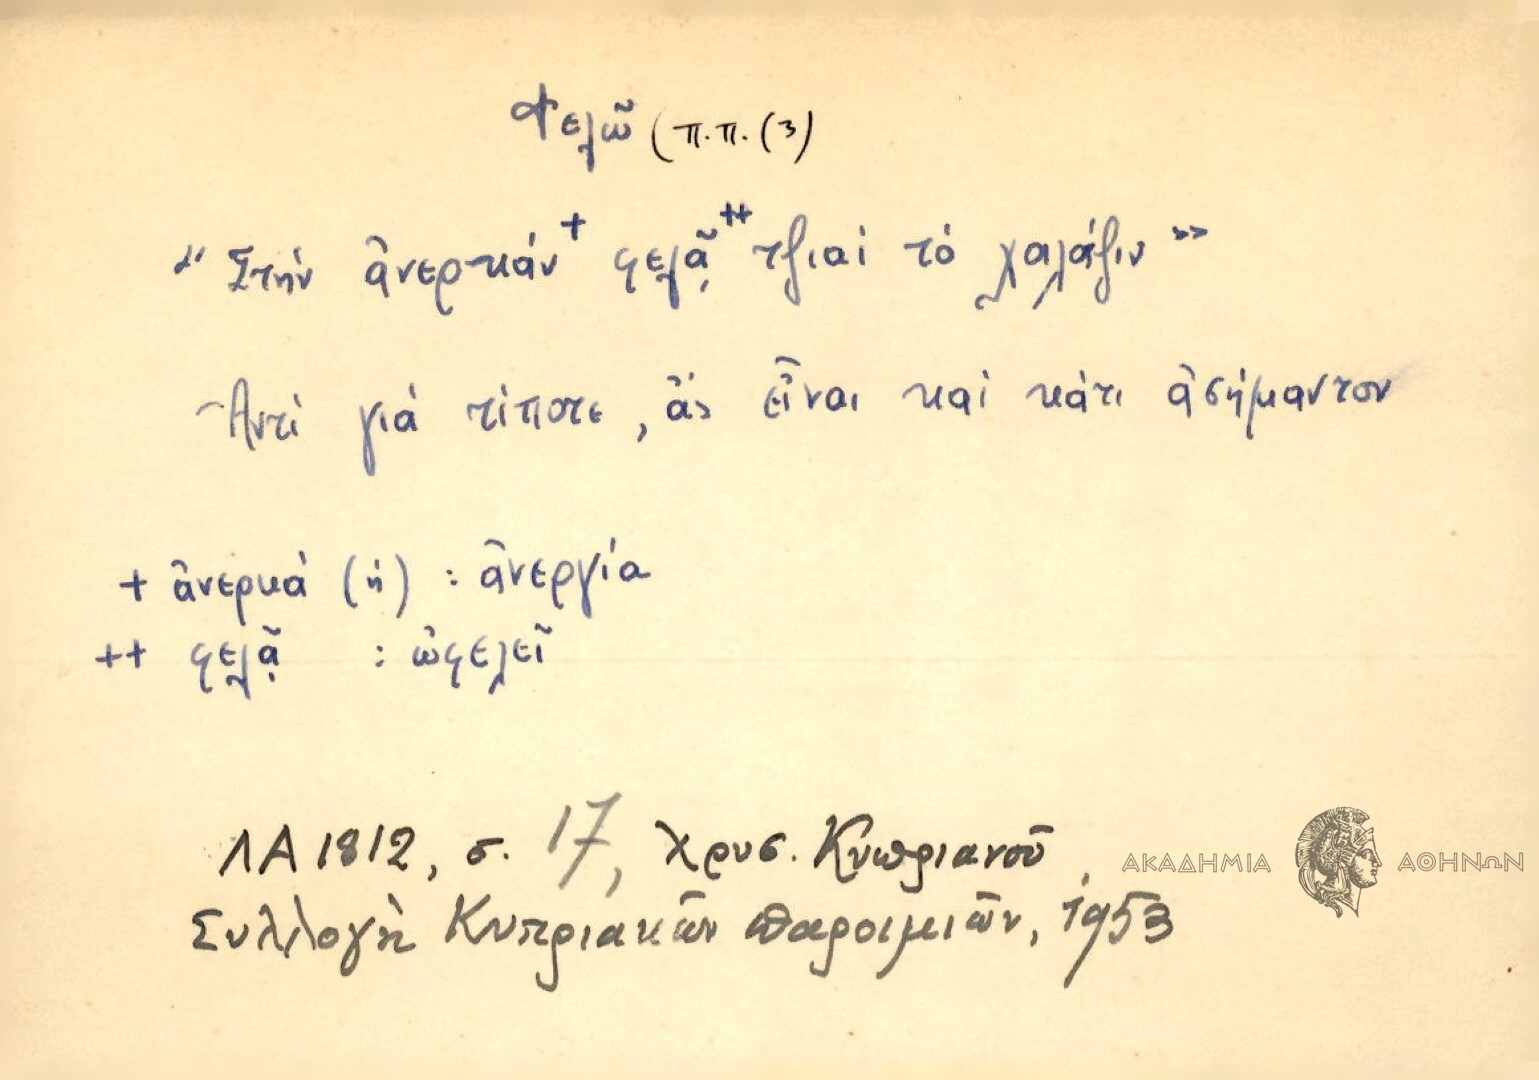 Φελῶ (π.π. (3)
"Στήν ἀνερκάν + φελᾷ ++ τζιαί τό χαλάζιν »
Ἀντί γιά τίποτε, ἄς εἶναι καί κάτι ἀσήμαντον
+ ἀνερκά (ἡ) : ἀνεργία
++ φελᾷ : ὠφελεῖ
ΛΑ 1812, σ. 17, Χρυσ. Κυπριανοῦ,
Συλλογή Κυπριακῶν παροιμιῶν, 1953
ΑΚΑΔΗΜΙΑ ΑΘΗΝΩΝ